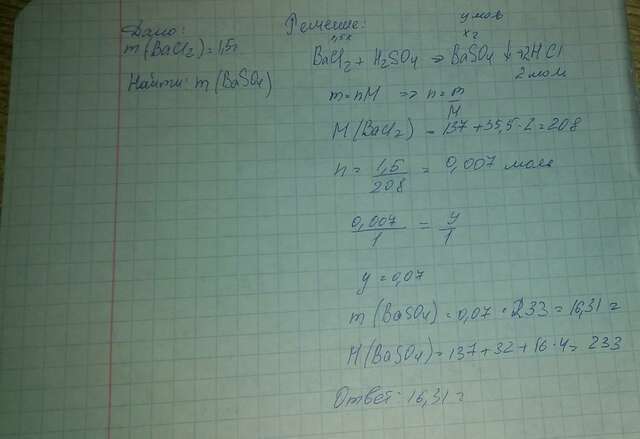 Дано:
m(BaCl2)=1,5г
Найти: m(BaSO4)
Решение:
1,5г
y моль
xг
BaCl2 + H2SO4 → BaSO4↓+2HCl
2 моль
m=nM => n=m/M
M(BaCl2) = 137+35,5·2=208
n= 1,5/208 = 0,007 моль
0,007/1 = y/1
y=0,07
m(BaSO4)=0,07·233=16,31г
M(BaSO4)=137+32+16·4=233
Ответ: 16,31г